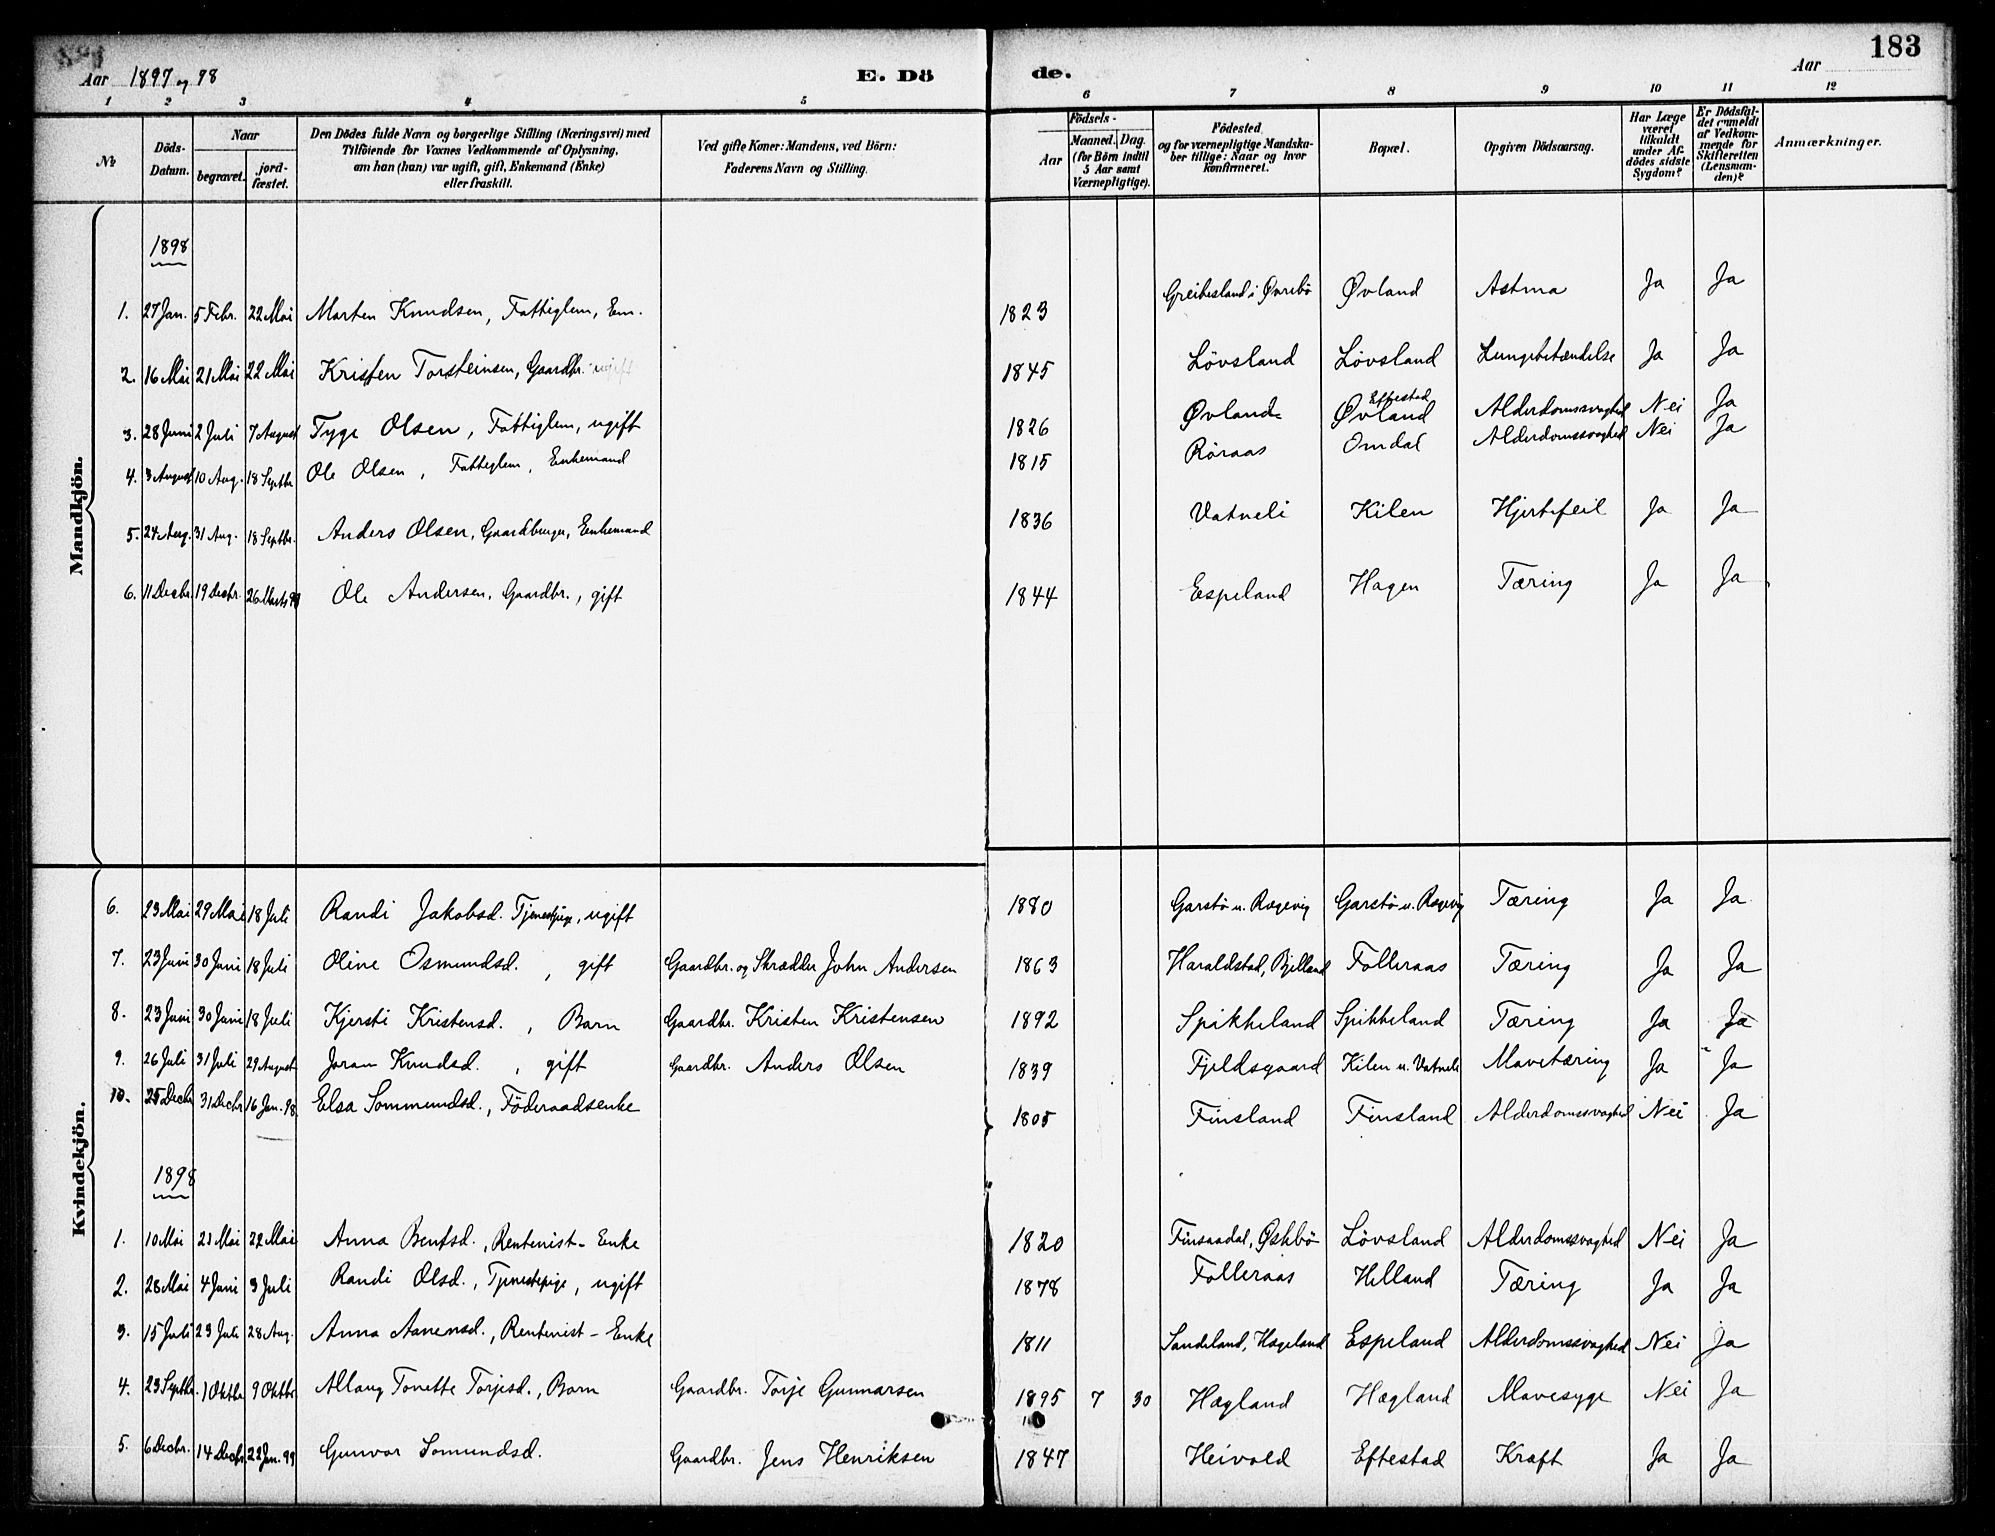 Aar 1897 og 98
E. Dö
de.
Aar
183
1 2 3 4 5 6 7 8 9 10 11 12
No
Döds-Datum.
Naar
begravet.
jord-fæstet.
Den Dödes fulde Navn og borgerlige Stilling (Næringsvei) med
Tilföiende for Voxnes Vedkommende af Oplysning,
om han (hun) var ugift, gift, Enkemand (Enke)
eller fraskilt.
Ved gifte Koner: Mandens, ved Börn:
Faderens Navn og Stilling.
Födsels-
Aar
Maaned. Dag.
(for Börn indtil
5 Aar samt
Værnepligtige).
Födested,
og for værnepligtige Mandska-
ber tillige: Naar og hvor
konfirmeret.
Bopæl.
Opgiven Dödsaarsag.
Har Læge
været
tilkaldt
under Af-
dödes sidste
Sygdom?
Er Dödsfal-
det anmeldt
af Vedkom-
mende for
Skifteretten
(Lensman-
den)?
Anmærkninger.
Mandkjön.
1898
1. 27 Jan. 5 Febr. 22 Mai Marten Knudsen, Fattiglem, Em. 1823 Greibesland i Øvrebö Øvland Astma Ja Ja
2. 16 Mai 21 Mai 22 Mai Kristen Torsteinsen, Gaardbr. ugift 1845 Lövsland Lövsland Lungebetændelse Ja Ja
3. 28 Juni 2 Juli 7 August Tyge Olsen, Fattiglem, ugift 1826 Øvland Eftestad Øvland Alderdomssvaghed Nei Ja
4. 3 August 10 Aug. 18 Septbr Ole Olsen, Fattiglem, Enkemand 1815 Röraas Omdal Alderdomssvaghed Nei Ja
5. 24 Aug. 31 Aug. 18 Septbr. Anders Olsen, Gaardbruger, Enkemand 1836 Vatneli Kilen Hjertefeil Ja Ja
6. 11 Decbr. 19 Decbr. 26 Marts 99 Ole Andersen, Gaardbr., gift 1844 Espeland Hagen Tæring Ja Ja
Kvindekjön.
6. 23 Mai 29 Mai 18 Juli Randi Jakobsd. Tjenestpige, ugift 1880 Garstö u. Rogevig Garstö u. Rogevig Tæring Ja Ja
7. 23 Juni 30 Juni 18 Juli Oline Osmundsd., gift Gaardbr. og Skrædder John Andersen 1863 Haraldstad, Bjelland Folleraas Tæring Ja Ja
8. 23 Juni 30 Juni 18 Juli Kjersti Kristensd., Barn Gaardbr. Kristen Kristensen 1892 Spikkeland Spikkeland Tæring Ja Ja
9. 26 Juli 31 Juli 29 August Joran Knudsd., gift Gaardbr. Anders Olsen 1839 Fjeldsgaard Kilen u. Vatneli Mavetæring Ja Ja
10. 25 Decbr 31 Decbr 16 Jan. 98 Elsa Sommundsd., Föderaadsenke 1805 Finsland Finsland Alderdomssvaghed Nei Ja
1898
1. 10 Mai 21 Mai 22 Mai Anna Bentsd., Rentenist-Enke 1820 Finsaadal, Øskbö Lövsland Alderdomssvaghed Nei Ja
2. 28 Mai 4 Juni 3 Juli Randi Olsd., Tjenestepige, ugift 1878 Folleraas Helland Tæring Ja Ja
3. 15 Juli 23 Juli 28 Aug. Anna Aanensd., Rentenist-Enke 1811 Sandeland, Hægeland Espeland Alderdomssvaghed Nei Ja
4. 23 Septbr. 1 Oktbr 9 Oktbr. Allaug Tonette Torjesd., Barn Gaardbr. Torje Gunnarsen 1895 7 30 Hægland Hægland Mavesyge Nei Ja
5. 6 Decbr. 14 Decbr 22 Jan. 99 Gunvor Somundsd. Gaardbr. Jens Henriksen 1847 Heivold Eftestad Kraft Ja Ja